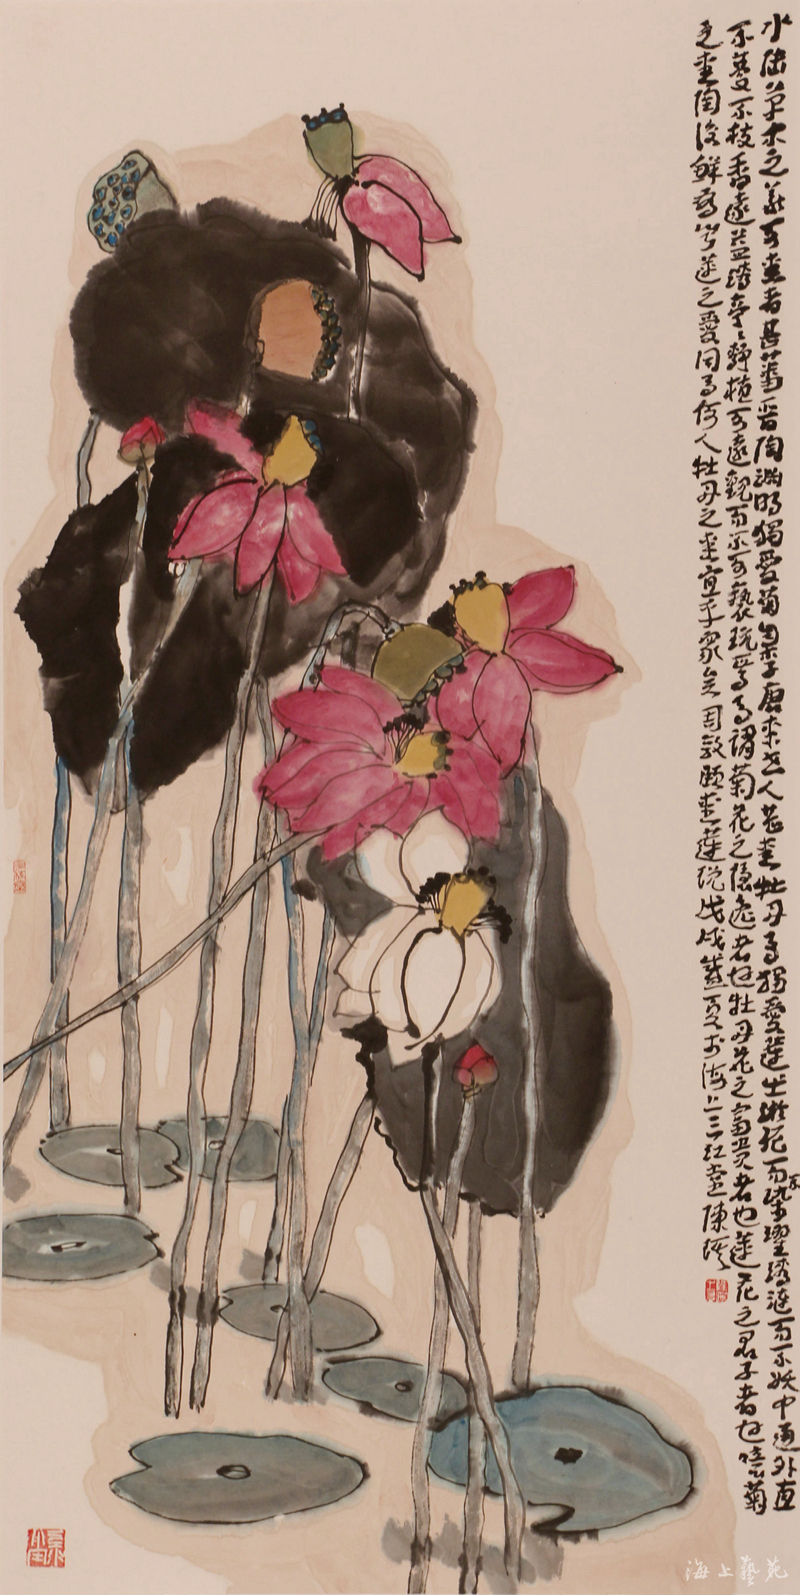 水陸草木之花可愛者甚蕃晉陶淵明獨愛菊自李唐來世人甚愛牡丹予獨愛蓮出淤泥而不染濯清漣而不妖中通外直
不蔓不枝香遠益清亭亭靜植可遠觀而不可褻玩焉予謂菊花之隱逸者也牡丹花之富貴者也蓮花之君子者也噫菊
之愛陶後鮮有聞蓮之愛同予何人牡丹之愛宜乎眾矣周敦頤愛蓮說戊戌盛夏於海上三紅堂陳
海上藝苑